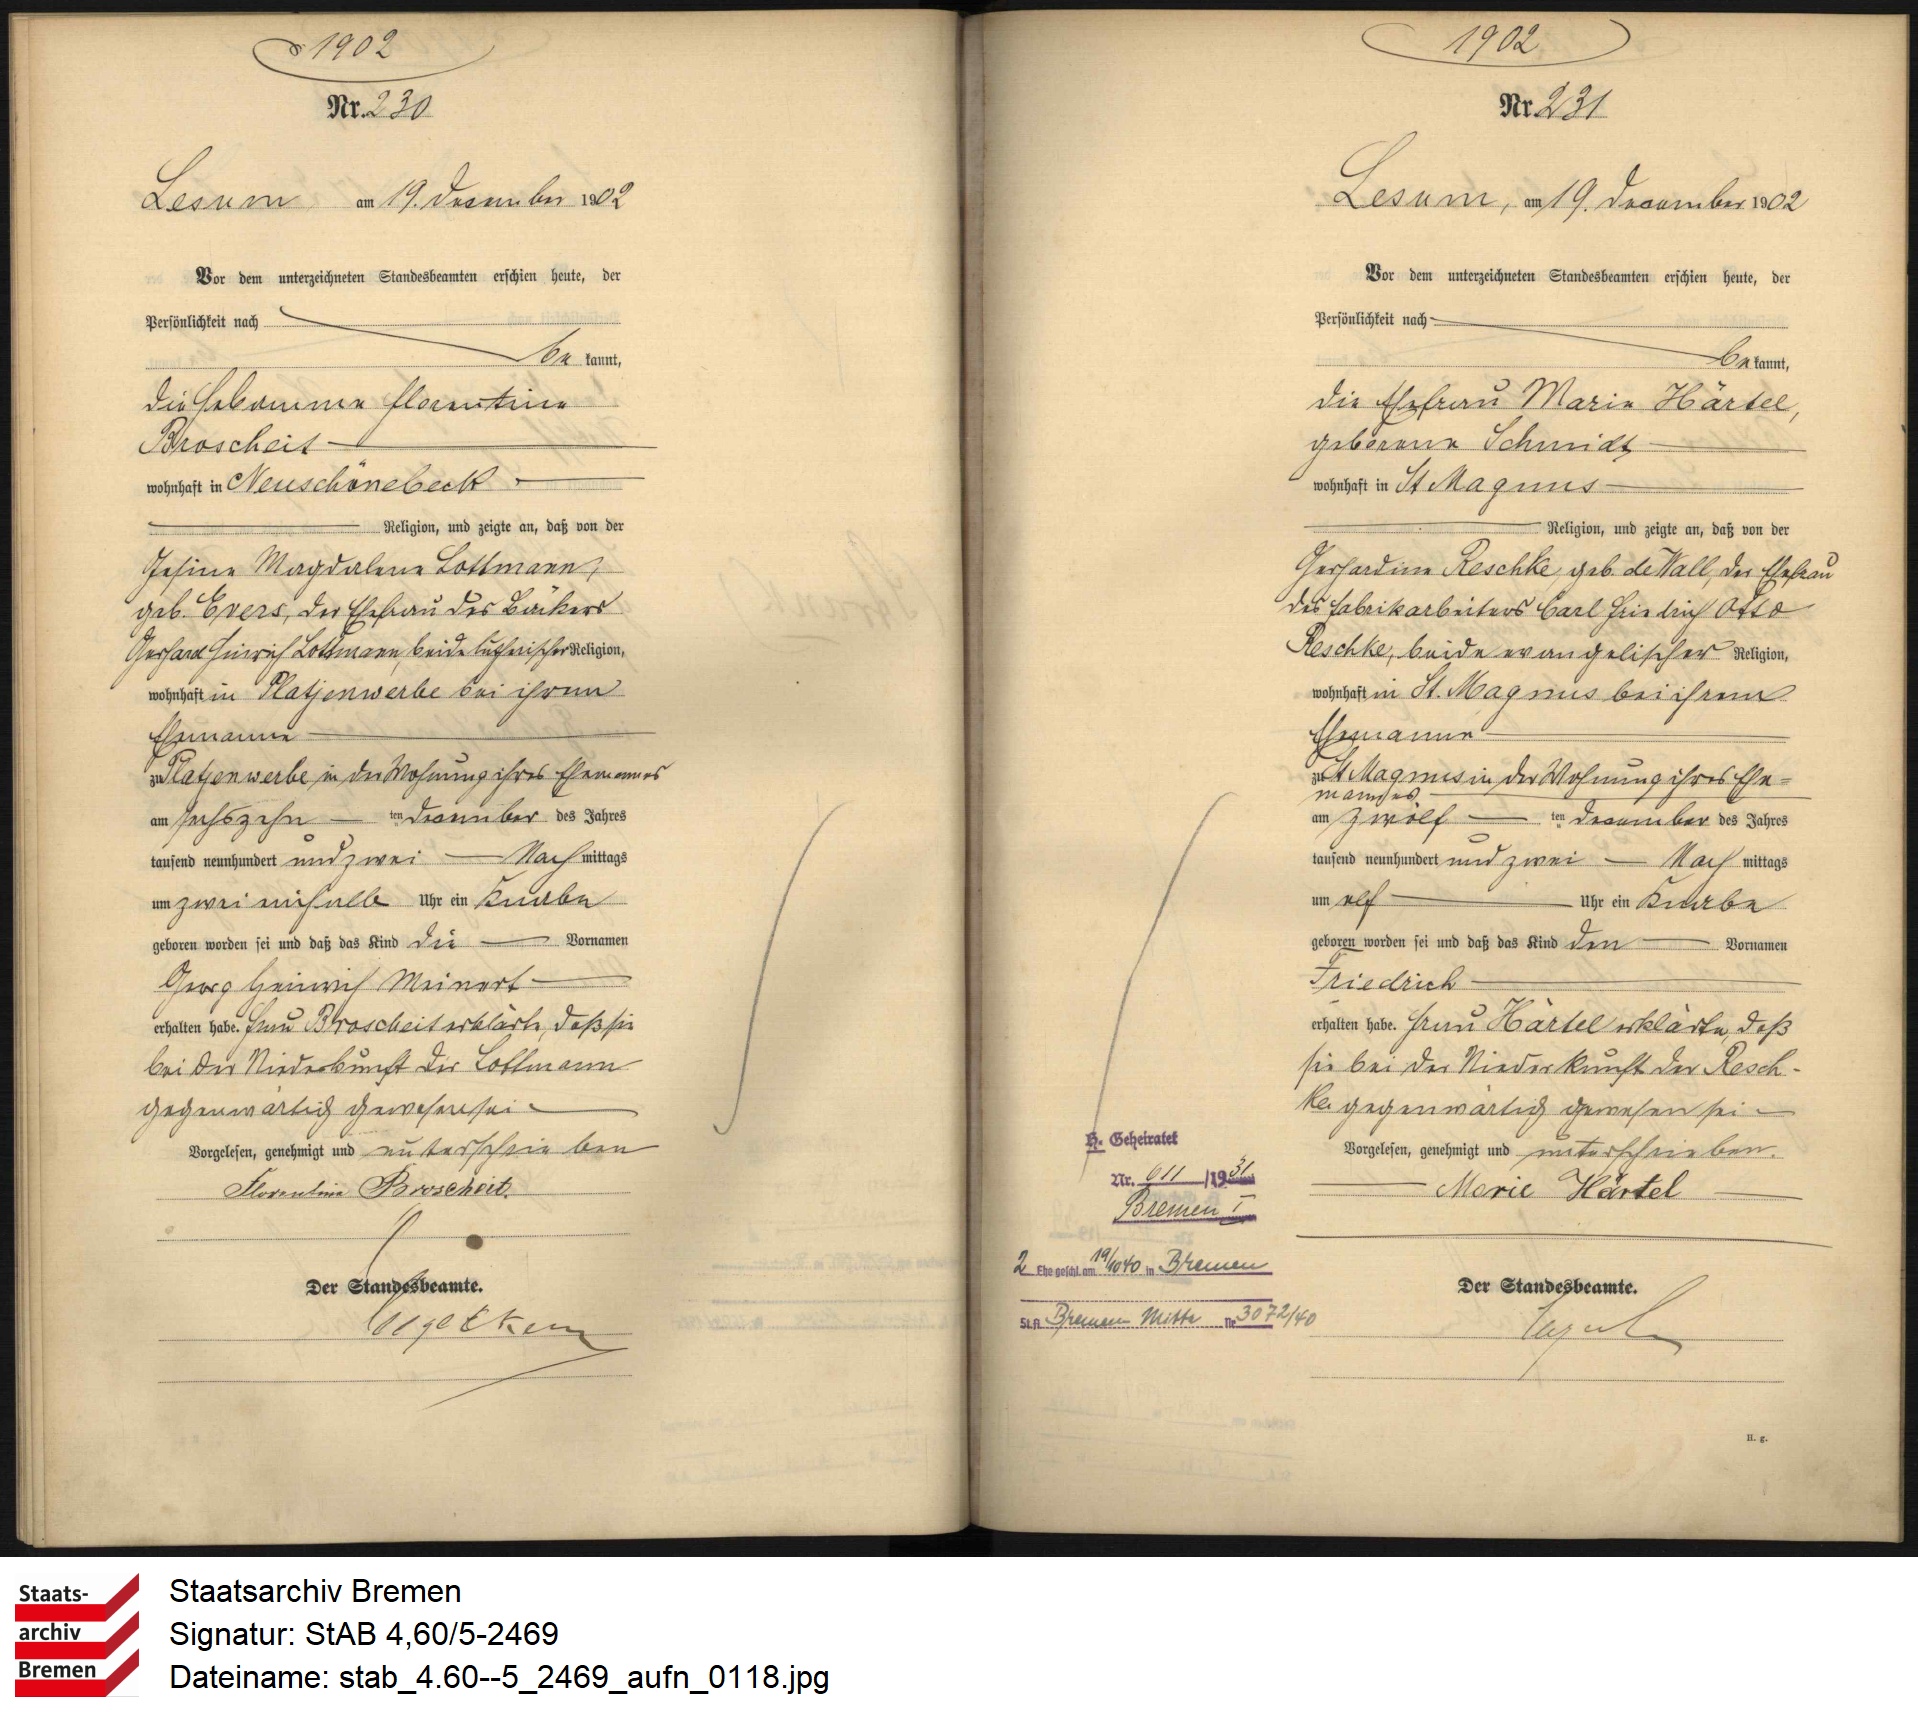 1902
Nr. 230
Lesum am 19. December 1902
Vor dem unterzeichneten Standesbeamten erschien heute, der
Persönlichkeit nach
be kannt,
die Hebamme Florentine
Broscheit
wohnhaft in Neuschönebeck
Religion, und zeigte an, daß von der
Gesine Magdalene Lottmann,
geb. Evers, der Ehefrau des Bäckers
Gerhard Hinrich Lottmann, beide lutherischer Religion,
wohnhaft in Platjenwerbe bei ihrem
Ehemanne
zu Platjenwerbe in der Wohnung ihres Ehemannes
am sechszehn ten December des Jahres
tausend neunhundert und zwei Nach mittags
um zwei einhalb Uhr ein Knabe
geboren worden sei und daß das Kind die Vornamen
Georg Heinrich Meinert
erhalten habe. Frau Broscheit erklärte, daß sie
bei der Niederkunft der Lottmann
gegenwärtig gewesen sei
Vorgelesen, genehmigt und unterschrieben
Florentine Broscheit.
Der Standesbeamte.
1902
Nr. 231
Lesum, am 19. December 1902
Vor dem unterzeichneten Standesbeamten erschien heute, der
Persönlichkeit nach
be kannt,
die Ehefrau Marie Härtel,
geborene Schmidt
wohnhaft in St Magnus
Religion, und zeigte an, daß von der
Gerhardine Reschke geb. de Wall, der Ehefrau
des Fabrikarbeiters Carl Friedrich Otto
Reschke, beide evangelischer Religion,
wohnhaft in St. Magnus bei ihrem
Ehemanne
zu St Magnus in der Wohnung ihres Ehe=
mannes
am zwölf ten December des Jahres
tausend neunhundert und zwei Nach mittags
um elf Uhr ein Knabe
geboren worden sei und daß das Kind den Vornamen
Friedrich
erhalten habe. Frau Härtel erklärte, daß
sie bei der Niederkunft der Resch-
ke gegenwärtig gewesen sei
Vorgelesen, genehmigt und unterschrieben.
Marie Härtel
Der Standesbeamte.
H. g.
H. Geheiratet
Nr. 611 /1931
Bremen I
2 Ehe geschl. am 19/10 40 in Bremen
St.A. Bremen Mitte Nr 3072/40
Staats-
archiv
Bremen
Staatsarchiv Bremen
Signatur: StAB 4,60/5-2469
Dateiname: stab_4.60--5_2469_aufn_0118.jpg